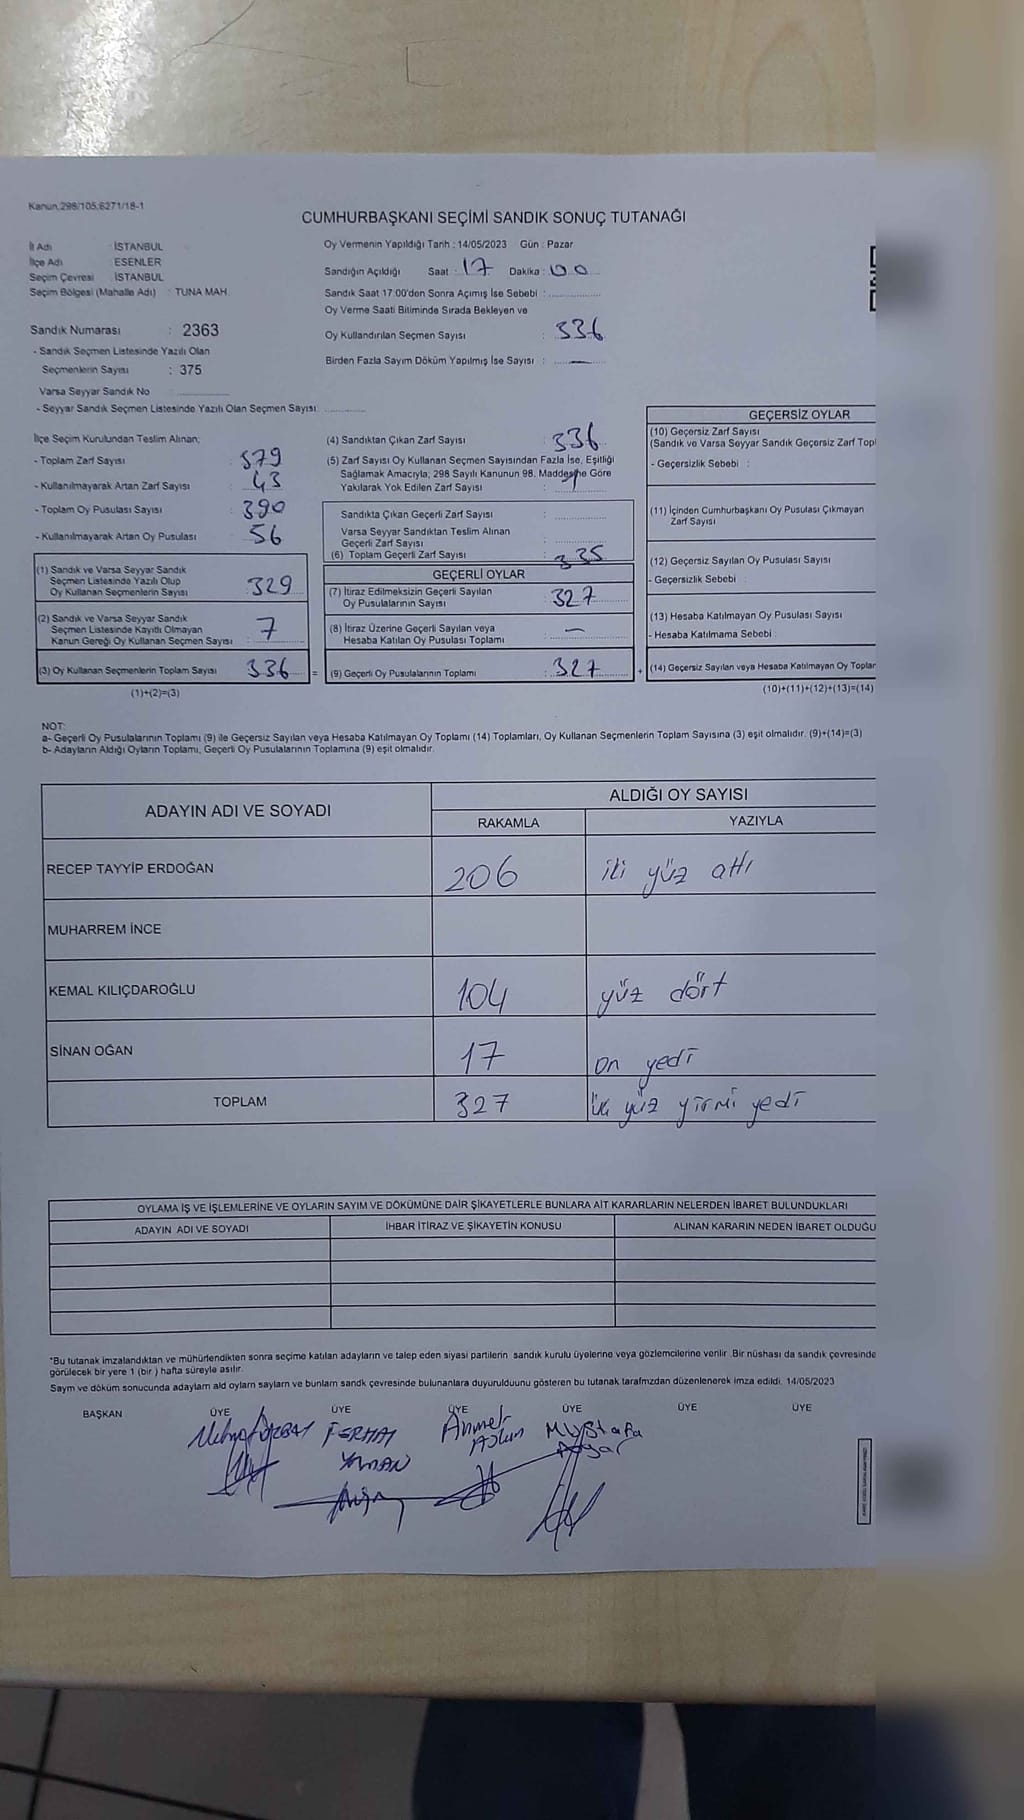 Kanun.298/105.6271/18-1
CUMHURBAŞKANI SEÇİMİ SANDIK SONUÇ TUTANAĞI
İl Adı : İSTANBUL
İlçe Adı : ESENLER
Seçim Çevresi : İSTANBUL
Seçim Bölgesi (Mahalle Adı) : TUNA MAH.
Oy Vermenin Yapıldığı Tarih : 14/05/2023 Gün : Pazar
Sandığın Açıldığı Saat : 17 Dakika : 00
Sandık Saat 17:00'den Sonra Açımış İse Sebebi :
Oy Verme Saati Bitiminde Sırada Bekleyen ve
Oy Kullandırılan Seçmen Sayısı : 336
Birden Fazla Sayım Döküm Yapılmış İse Sayısı : —
Sandık Numarası : 2363
- Sandık Seçmen Listesinde Yazılı Olan
Seçmenlerin Sayısı : 375
Varsa Seyyar Sandık No
- Seyyar Sandık Seçmen Listesinde Yazılı Olan Seçmen Sayısı:
İlçe Seçim Kurulundan Teslim Alınan;
- Toplam Zarf Sayısı : 379
- Kullanılmayarak Artan Zarf Sayısı : 43
- Toplam Oy Pusulası Sayısı : 390
- Kullanılmayarak Artan Oy Pusulası : 56
(1) Sandık ve Varsa Seyyar Sandık
Seçmen Listesinde Yazılı Olup
Oy Kullanan Seçmenlerin Sayısı : 329
(2) Sandık ve Varsa Seyyar Sandık
Seçmen Listesinde Kayıtlı Olmayan
Kanun Gereği Oy Kullanan Seçmen Sayısı : 7
(3) Oy Kullanan Seçmenlerin Toplam Sayısı 336 =
(1)+(2)=(3)
(4) Sandıktan Çıkan Zarf Sayısı : 336
(5) Zarf Sayısı Oy Kullanan Seçmen Sayısından Fazla İse, Eşitliği
Sağlamak Amacıyla, 298 Sayılı Kanunun 98. Maddesine Göre
Yakılarak Yok Edilen Zarf Sayısı :
Sandıkta Çıkan Geçerli Zarf Sayısı :
Varsa Seyyar Sandıktan Teslim Alınan
Geçerli Zarf Sayısı :
(6) Toplam Geçerli Zarf Sayısı : 335
GEÇERLİ OYLAR
(7) İtiraz Edilmeksizin Geçerli Sayılan
Oy Pusulalarının Sayısı : 327
(8) İtiraz Üzerine Geçerli Sayılan veya
Hesaba Katılan Oy Pusulası Toplamı : —
(9) Geçerli Oy Pusulalarının Toplamı : 327 +
GEÇERSİZ OYLAR
(10) Geçersiz Zarf Sayısı
(Sandık ve Varsa Seyyar Sandık Geçersiz Zarf Topl
- Geçersizlik Sebebi :
(11) İçinden Cumhurbaşkanı Oy Pusulası Çıkmayan
Zarf Sayısı
(12) Geçersiz Sayılan Oy Pusulası Sayısı
- Geçersizlik Sebebi :
(13) Hesaba Katılmayan Oy Pusulası Sayısı
- Hesaba Katılmama Sebebi :
(14) Geçersiz Sayılan veya Hesaba Katılmayan Oy Toplar
(10)+(11)+(12)+(13)=(14)
NOT:
a- Geçerli Oy Pusulalarının Toplamı (9) ile Geçersiz Sayılan veya Hesaba Katılmayan Oy Toplamı (14) Toplamları, Oy Kullanan Seçmenlerin Toplam Sayısına (3) eşit olmalıdır. (9)+(14)=(3)
b- Adayların Aldığı Oyların Toplamı, Geçerli Oy Pusulalarının Toplamına (9) eşit olmalıdır.
ADAYIN ADI VE SOYADI ALDIĞI OY SAYISI
RAKAMLA YAZIYLA
RECEP TAYYİP ERDOĞAN 206 iki yüz altı
MUHARREM İNCE
KEMAL KILIÇDAROĞLU 104 yüz dört
SİNAN OĞAN 17 on yedi
TOPLAM 327 üç yüz yirmi yedi
OYLAMA İŞ VE İŞLEMLERİNE VE OYLARIN SAYIM VE DÖKÜMÜNE DAİR ŞİKAYETLERLE BUNLARA AİT KARARLARIN NELERDEN İBARET BULUNDUKLARI
ADAYIN ADI VE SOYADI İHBAR İTİRAZ VE ŞİKAYETİN KONUSU ALINAN KARARIN NEDEN İBARET OLDUĞU
*Bu tutanak imzalandıktan ve mühürlendikten sonra seçime katılan adayların ve talep eden siyasi partilerin sandık kurulu üyelerine veya gözlemcilerine verilir. Bir nüshası da sandık çevresinde
görülecek bir yere 1 (bir ) hafta süreyle asılır.
Saym ve döküm sonucunda adaylarn ald oylarn saylarn ve bunlarn sandk çevresinde bulunanlara duyurulduunu gösteren bu tutanak tarafmzdan düzenlenerek imza edildi. 14/05/2023
BAŞKAN ÜYE ÜYE ÜYE ÜYE ÜYE ÜYE
FERHAT Ahmet Mustafa
YAMAN Aslan